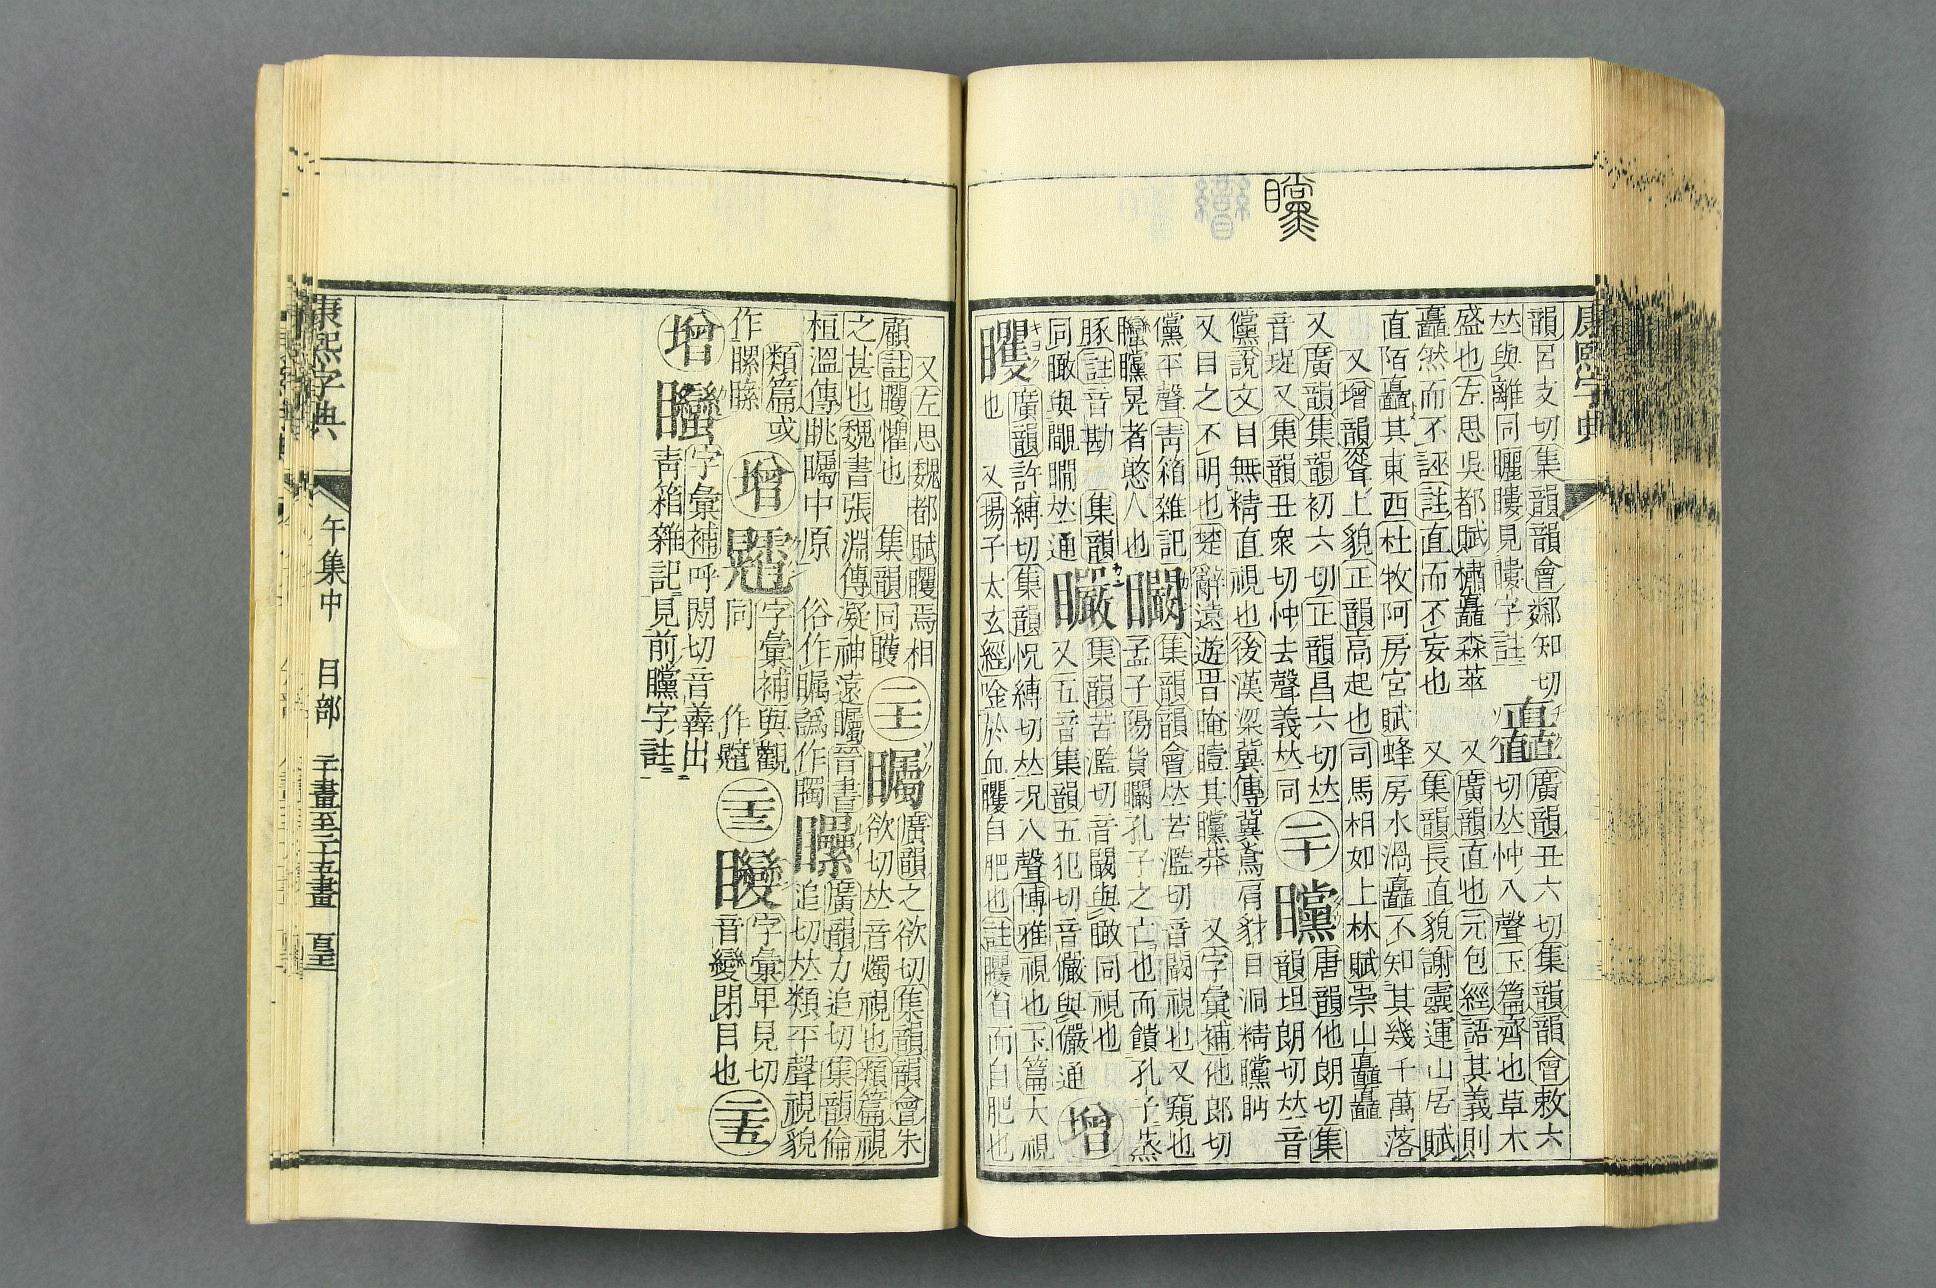 韻呂支切集韻韻會鄰知切
𠀤與離同矖瞜見瞜字註
矗
廣韻丑六切集韻韻會敕六
切𠀤忡入聲玉篇齊也草木
盛也左思吳都賦橚矗森萃 又廣韻直也元包經語其義則
矗然而不誣註直而不妄也 又集韻長直貌謝靈運山居賦
直陌矗其東西杜牧阿房宮賦蜂房水渦矗不知其幾千萬落
又增韻聳上貌正韻高起也司馬相如上林賦崇山矗矗
又廣韻集韻初六切正韻昌六切𠀤
音珿又集韻丑衆切忡去聲義𠀤同
二十
矘
唐韻他朗切集
韻坦朗切𠀤音
儻說文目無精直視也後漢梁冀傳冀鳶肩豺目洞精矘眄
又目之不明也楚辭遠遊晻曀其矘莽 又字彙補他郎切
儻平聲靑箱雜記
矘晃者憨人也
矙
集韻韻會𠀤苦濫切音闞視也又窺也
孟子陽貨矙孔子之亡也而饋孔子蒸
豚註音勘 集韻
同瞰與𠀤通
集韻苦濫切音闞與瞰同視也
又五音集韻五犯切音儼與儼通
增
矡
廣韻許縛切集韻怳縛切𠀤況入聲博雅視也玉篇大視
也 又揚子太玄經唫於血矡自肥也註矡省而自肥也
矘
康熙字典
又左思魏都賦矡焉相
顧註矡懼也 集韻同矆
二十一
矚
廣韻之欲切集韻韻會朱
欲切𠀤音燭視也類篇視
之甚也魏書張淵傳凝神遠矚晉書
桓溫傳眺矚中原 俗作瞩譌作
廣韻力追切集韻倫
追切𠀤類平聲視貌
類篇或
作
增
字彙補與觀
同 作
二十三
字彙甲見切
音變閉目也
二十五
增
字彙補呼切音羴出
靑箱雜記見前矘字註
康熙字典
午集中 目部 二十畫至二十五畫